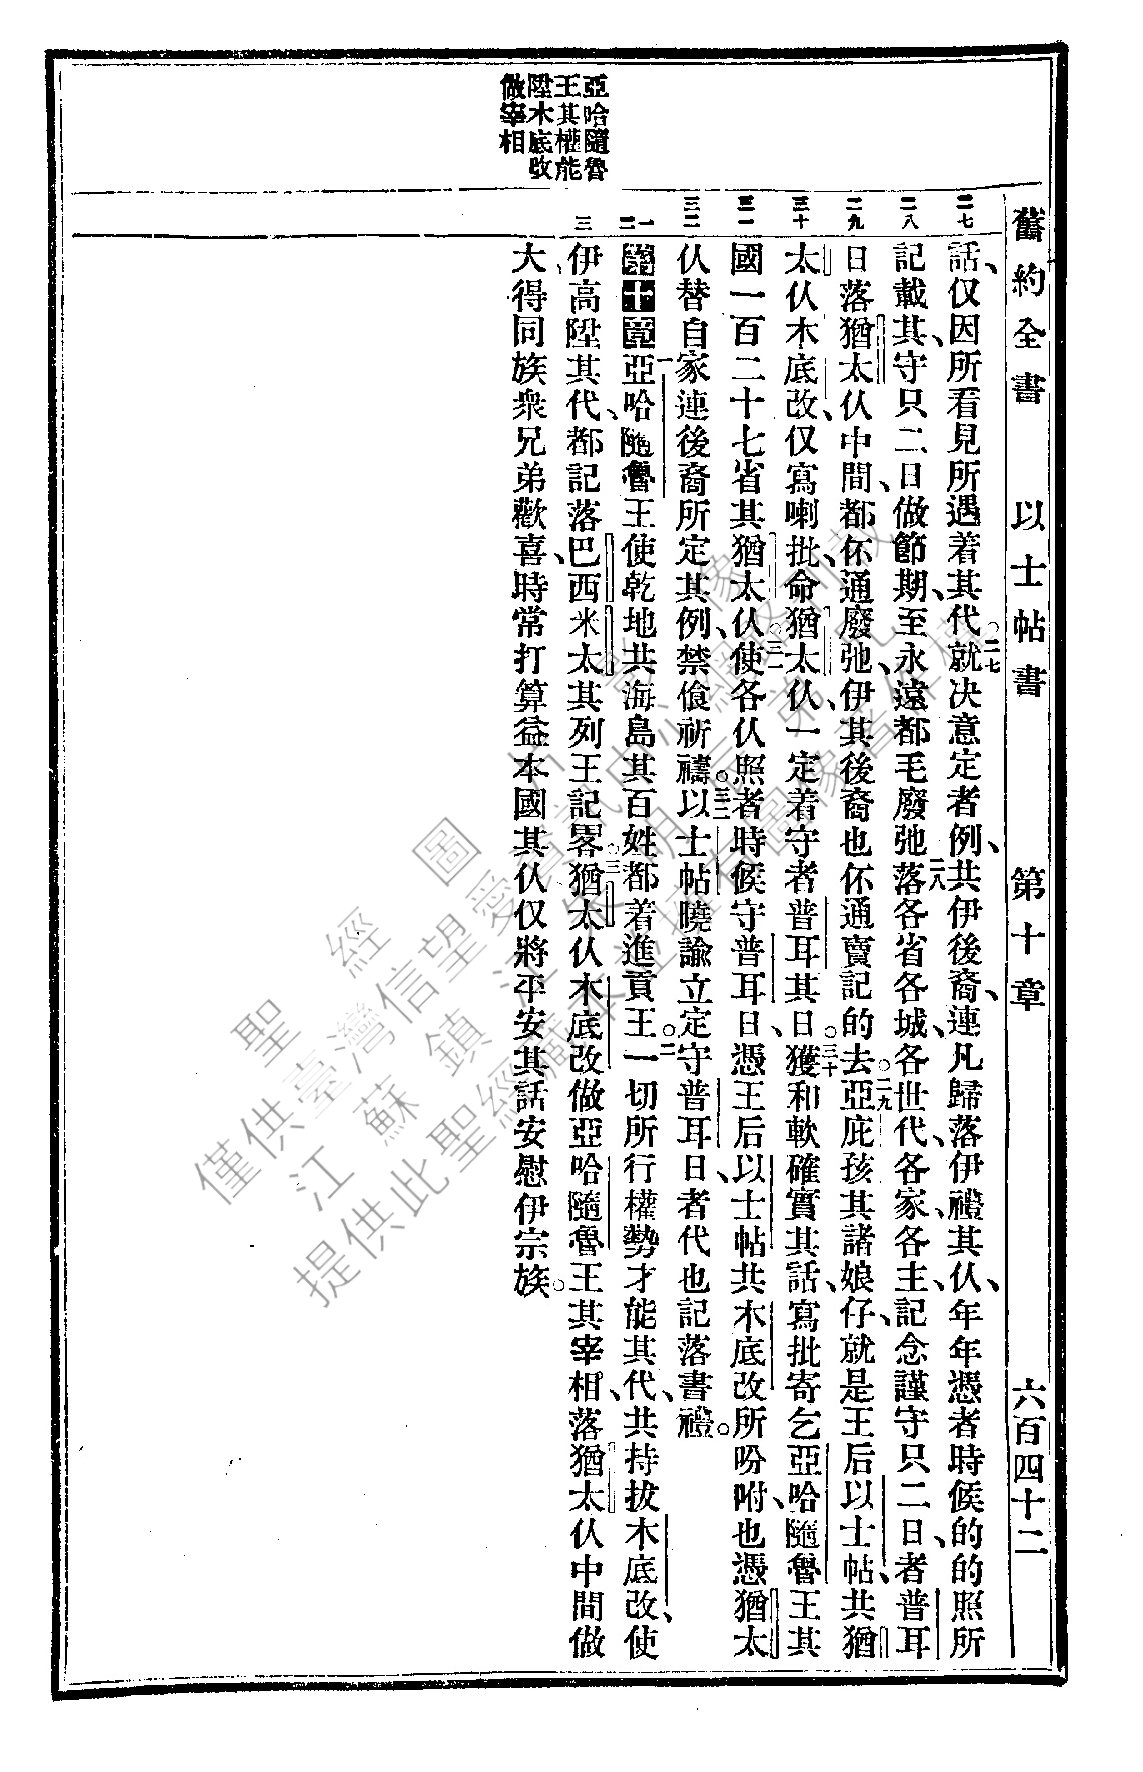 舊約全書 以士帖書 第十章 六百四十二
亞哈隨魯
王其權能
陞木底改
做宰相
二七 二八 二九 三十 三一 三二 一 二 三
話、仅因所看見所遇着其代○二七就決意定者例、共伊後裔、連凡歸落伊禮其仫、年年憑者時候的的照所
記載其、守只二日做節期、至永遠都毛廢弛二八落各省各城、各世代、各家、各主、記念謹守只二日、者普耳
日落猶太仫中間、都伓通廢弛、伊其後裔也伓通賣記的去○二九亞庇孩其諸娘仔、就是王后以士帖、共猶
太仫木底改、仅寫喇批、命猶太仫、一定着守者普耳其日○三十獲和軟確實其話、寫批寄乞亞哈隨魯王其
國一百二十七省其猶太仫○三一使各仫照者時候守普耳日、憑王后以士帖共木底改所吩咐、也憑猶太
仫替自家連後裔所定其例、禁食祈禱○三二以士帖曉諭立定守普耳日、者代也記落書禮○
第十章 一亞哈隨魯王使乾地共海島其百姓都着進貢○二王一切所行權勢才能其代、共持拔木底改、使
伊高陞其代、都記落巴西米太其列王記畧○三猶太仫木底改做亞哈隨魯王其宰相、落猶太仫中間做
大、得同族衆兄弟歡喜、時常打算益本國其仫、仅將平安其話安慰伊宗族○
聖經圖片
僅供臺灣信望愛
江蘇鎮江
提供此聖經藏本